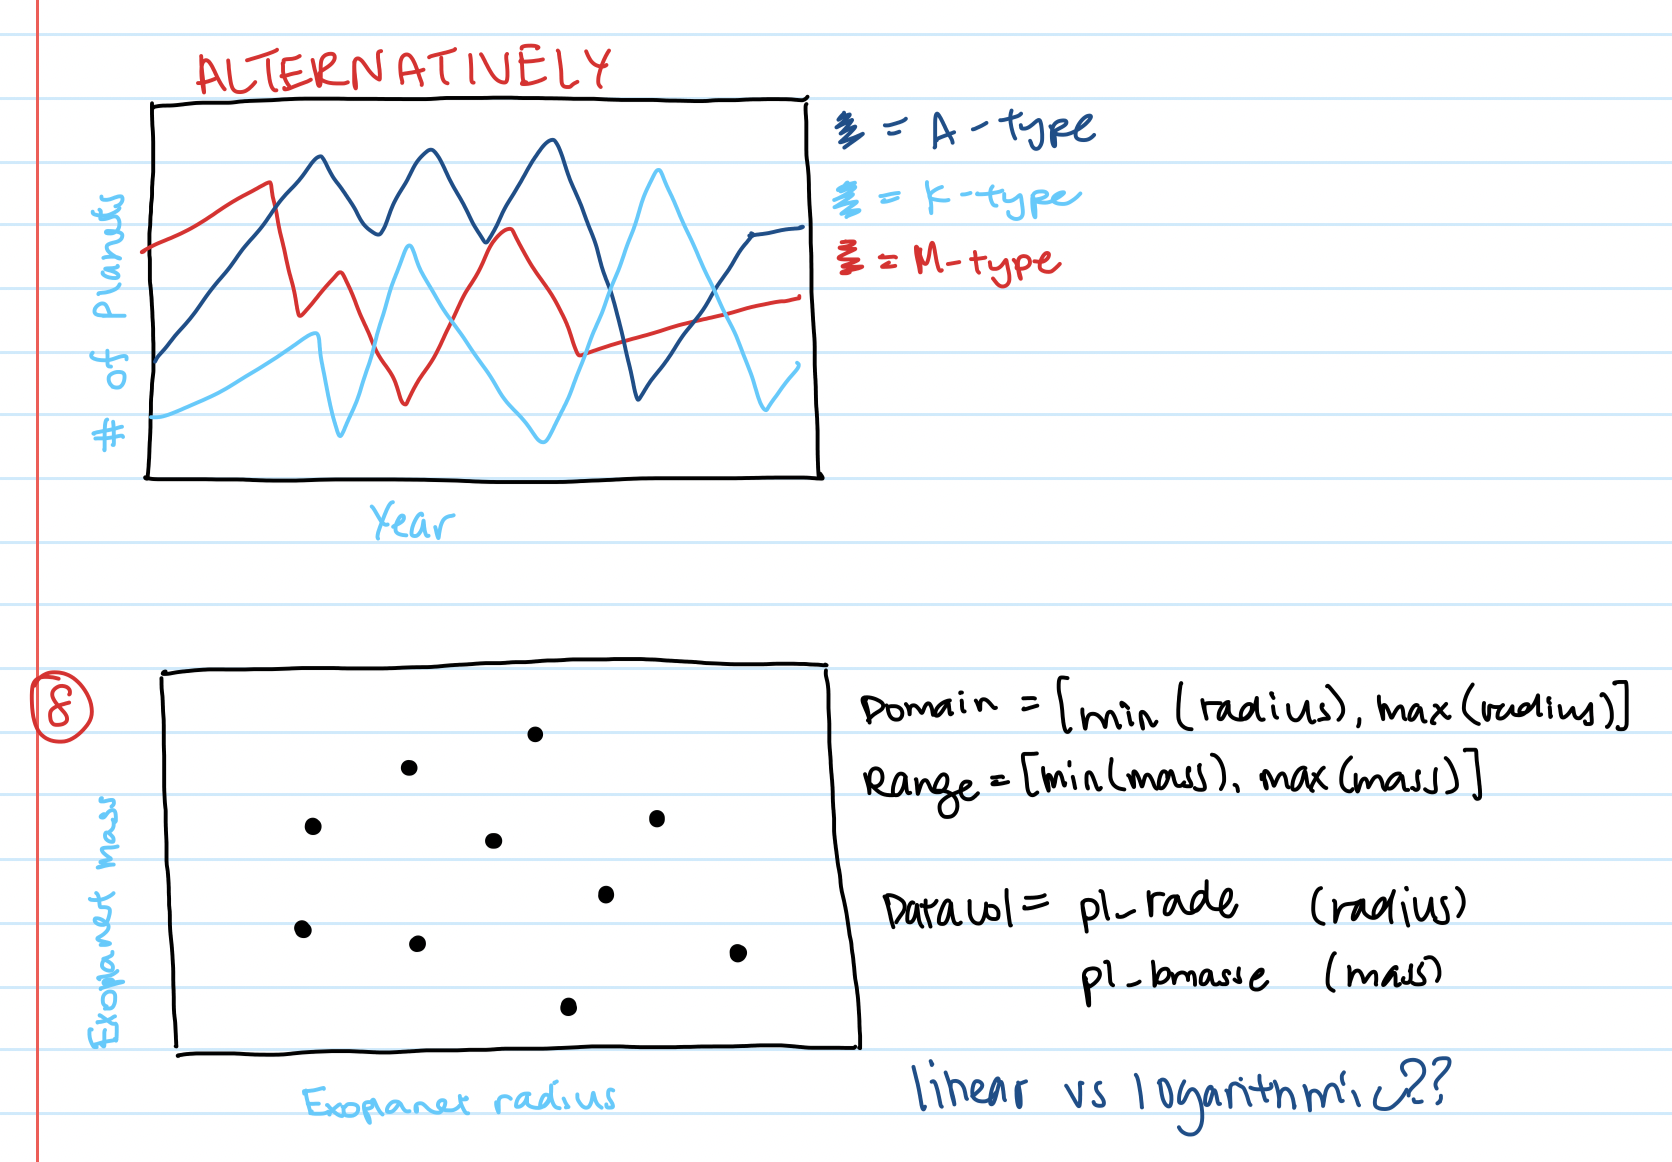 ALTERNATIVELY
# of Planets
= A-type
= K-type
= M-type
Year
8
Exoplanet mass
Exoplanet radius
Domain = [min (radius), max (radius)]
Range = [min(mass), max (mass)]
Data col = pl_rade (radius)
pl_bmasse (mass)
linear vs logarithmic??